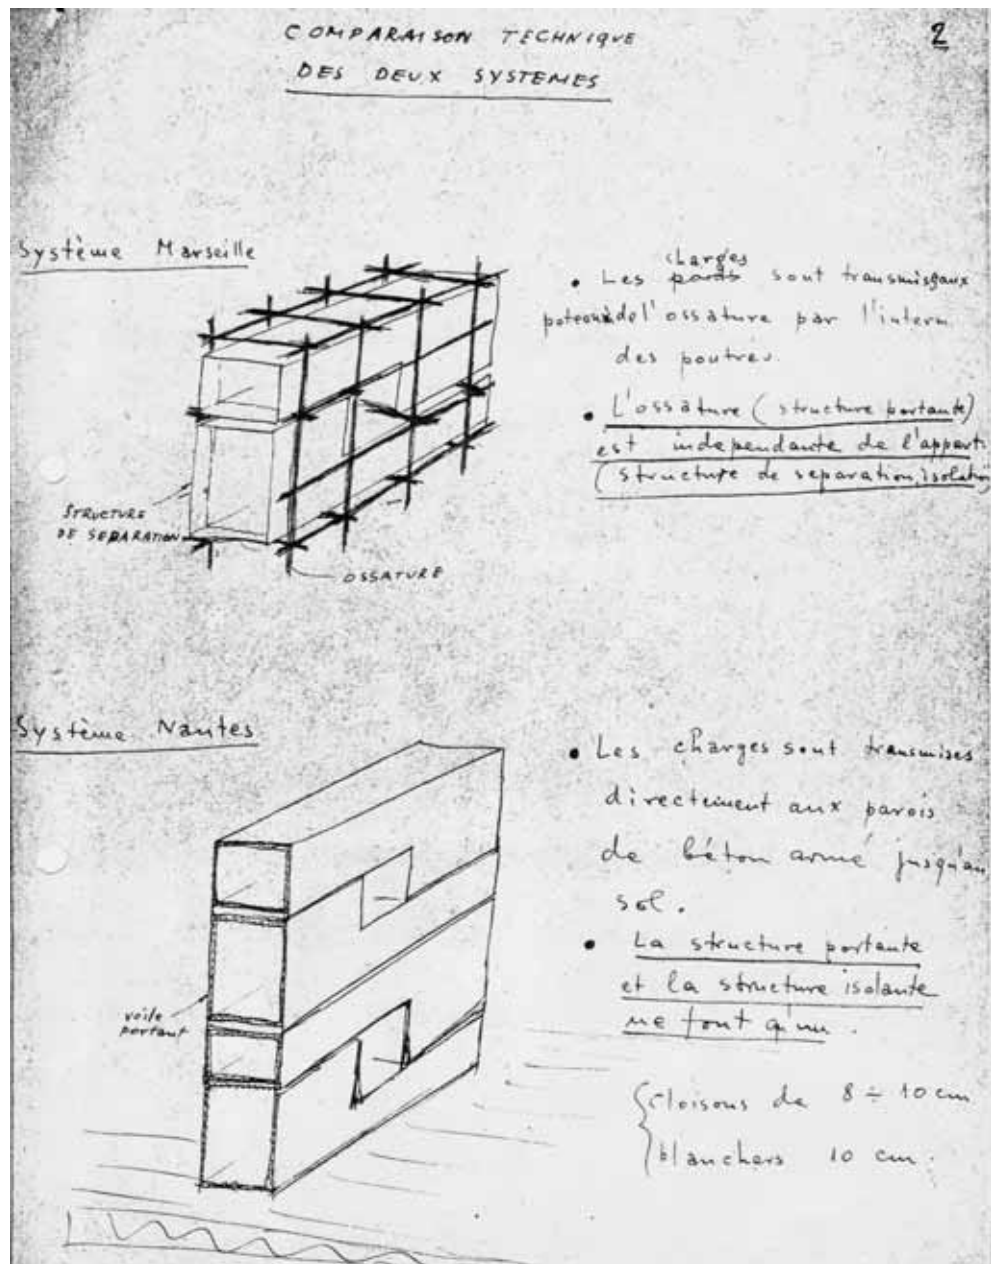 COMPARAISON TECHNIQUE
2
DES DEUX SYSTEMES
Système Marseille
charges
• Les poids sont transmises aux
poteaux de l'ossature par l'interm
des poutres.
• L'ossature (structure portante)
est independante de l'appart.
(structure de separation, isolation
STRUCTURE
DE SEPARATION
OSSATURE
Système Nantes
• Les charges sont transmises
directement aux parois
de béton armé jusqu'au
sol.
• La structure portante
et la structure isolante
ne font qu'un.
voile
portant
cloisons de 8 ÷ 10 cm
planchers 10 cm.